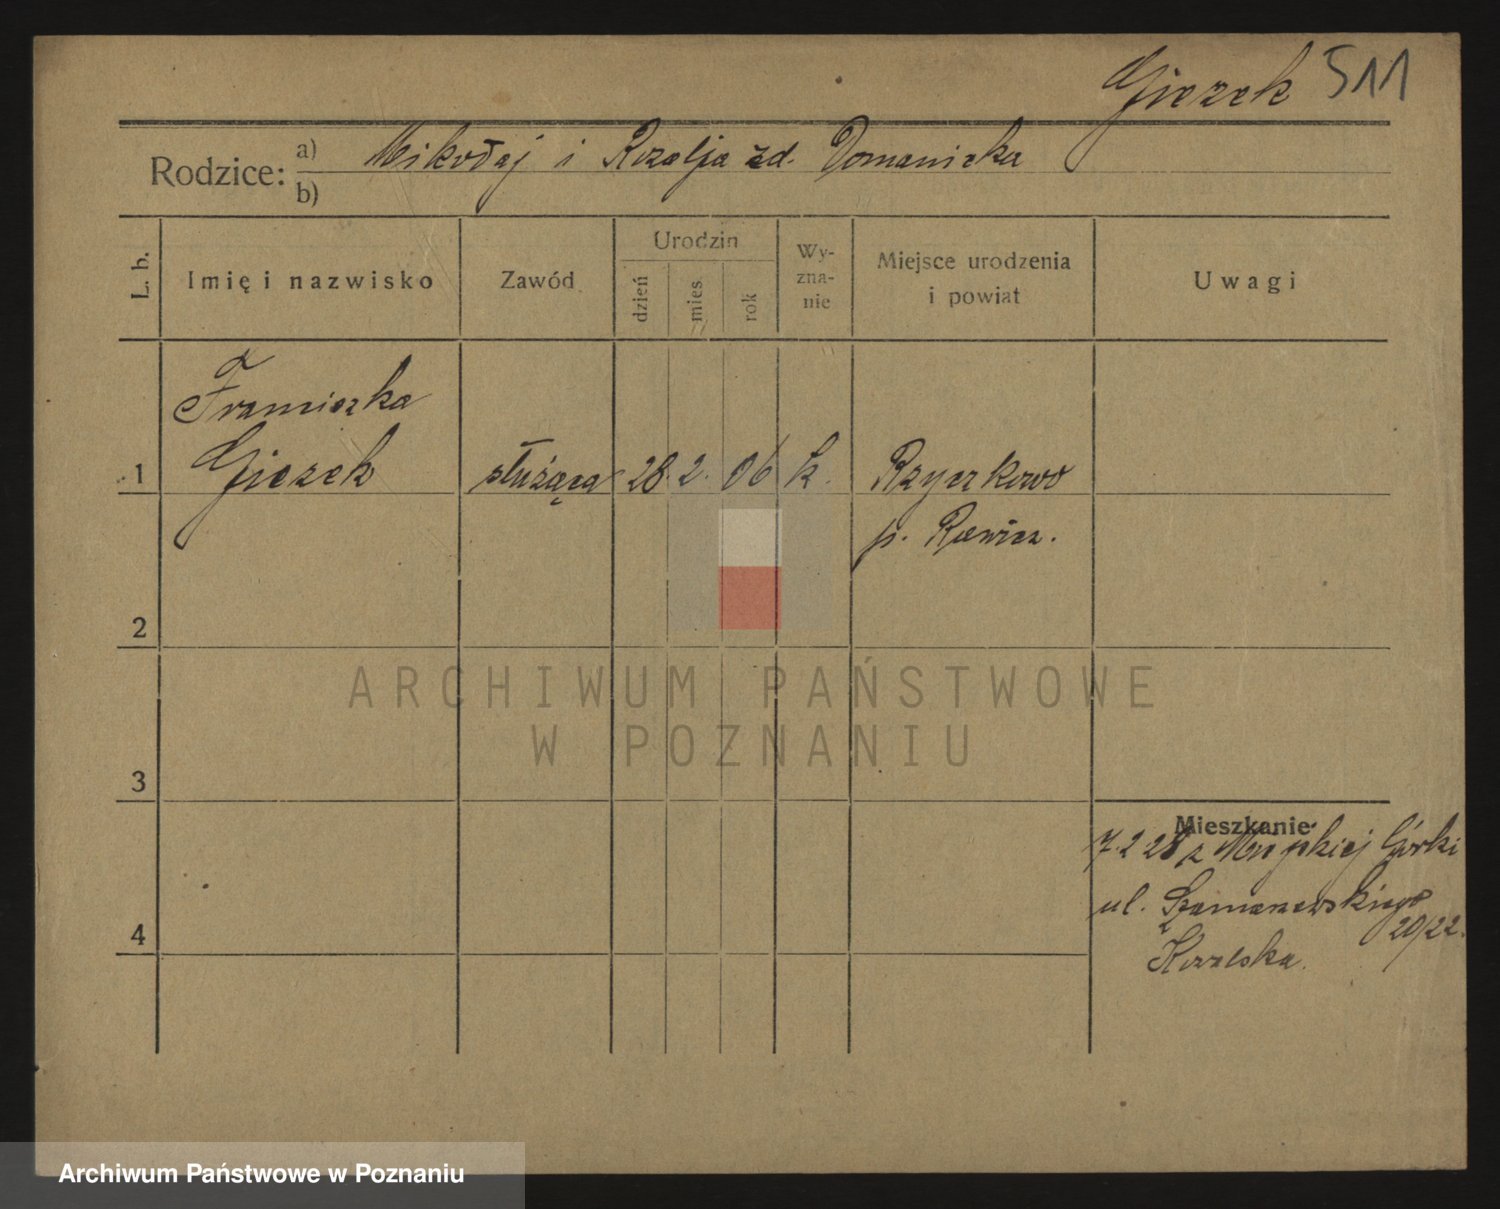 Giezek 511
Rodzice: a) Mikołaj i Rozalja zd. Domanicka
b)
L. b.
Imię i nazwisko
Zawód
Urodzin
dzień
mies.
rok
Wy-
zna-
nie
Miejsce urodzenia
i powiat
Uwagi
Franciszka
1 Giezek służąca 28. 2. 06 k. Rzyczkowo
p. Rawicz.
2
3
4
Mieszkanie:
7.2 28 z Miejskiej Górki
ul. Szamarzewskiego
20/22.
ARCHIWUM PAŃSTWOWE
W POZNANIU
Archiwum Państwowe w Poznaniu